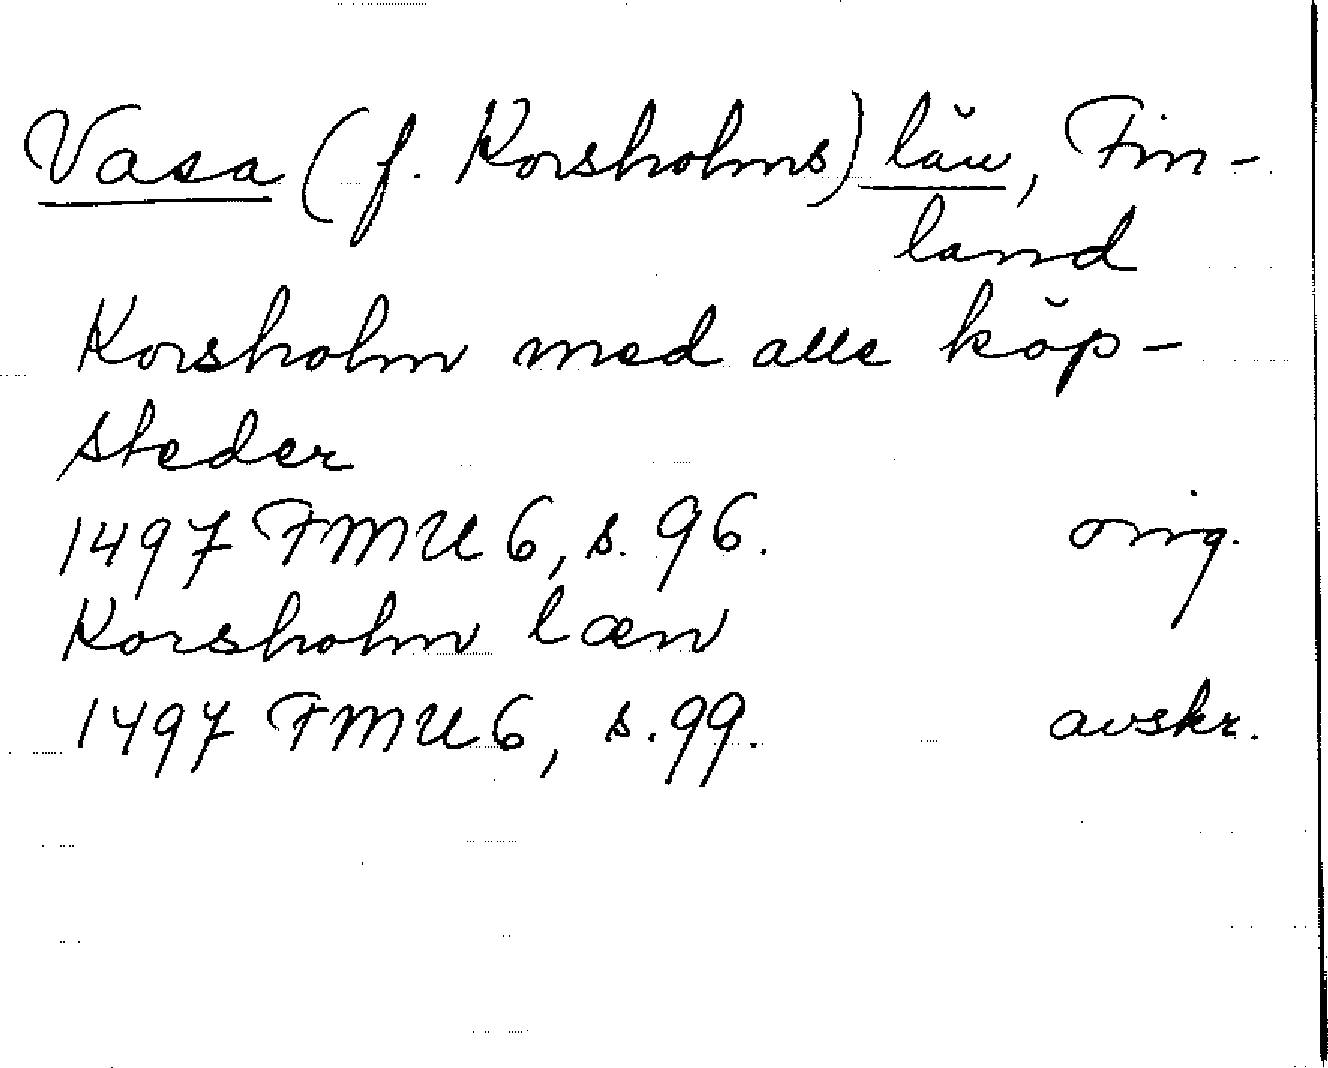 Vasa (f. Korsholms) län, Fin-
land
Korsholm med alle köp-
steder
1497 FMU 6, s. 96. orig.
Korsholm læn
1497 FMU 6, s. 99. avskr.